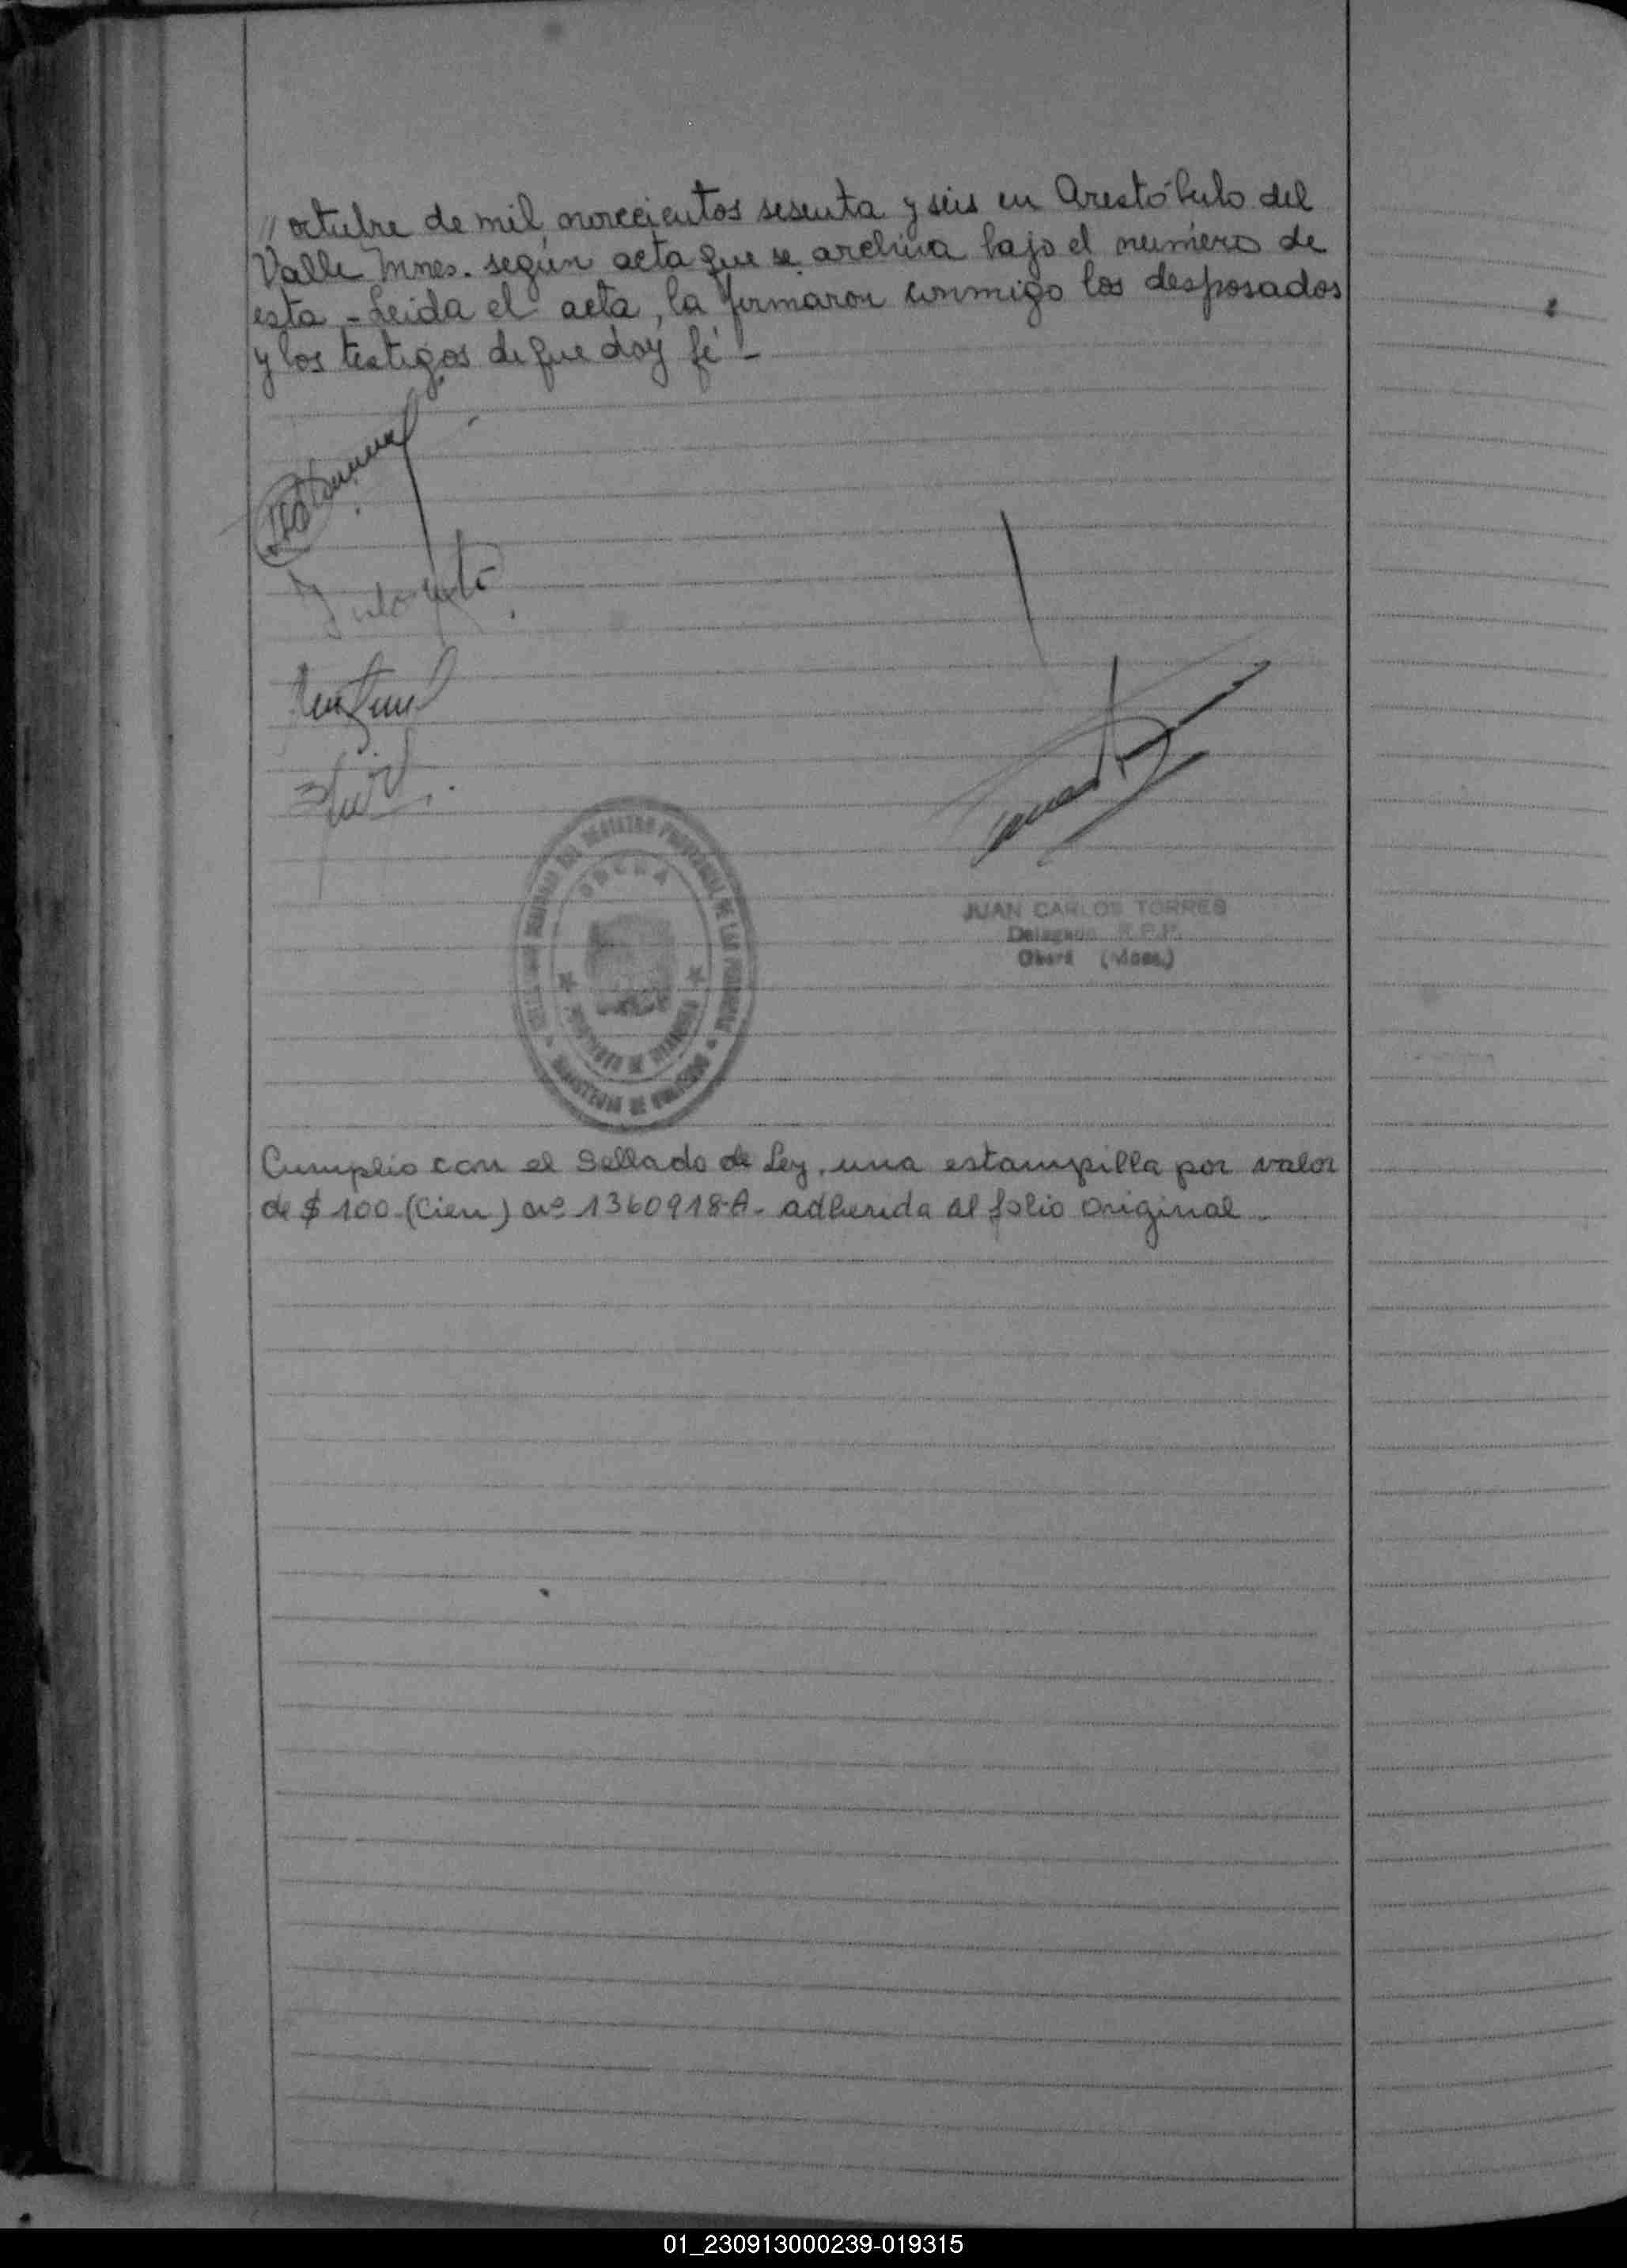 // octubre de mil novecientos sesenta y seis en Arestóbulo del
Valle Mnes. según acta que se archiva bajo el número de
esta - Leida el acta, la firmaron conmigo los desposados
y los testigos de que doy fé -
OBERA
JUAN CARLOS TORRES
Delegado R.P.P.
Oberá (Mnes.)
Cumplio con el Sellado de Ley, una estampilla por valor
de $ 100 - (Cien) nº 1360918-A - adherida al folio original -
01_230913000239-019315